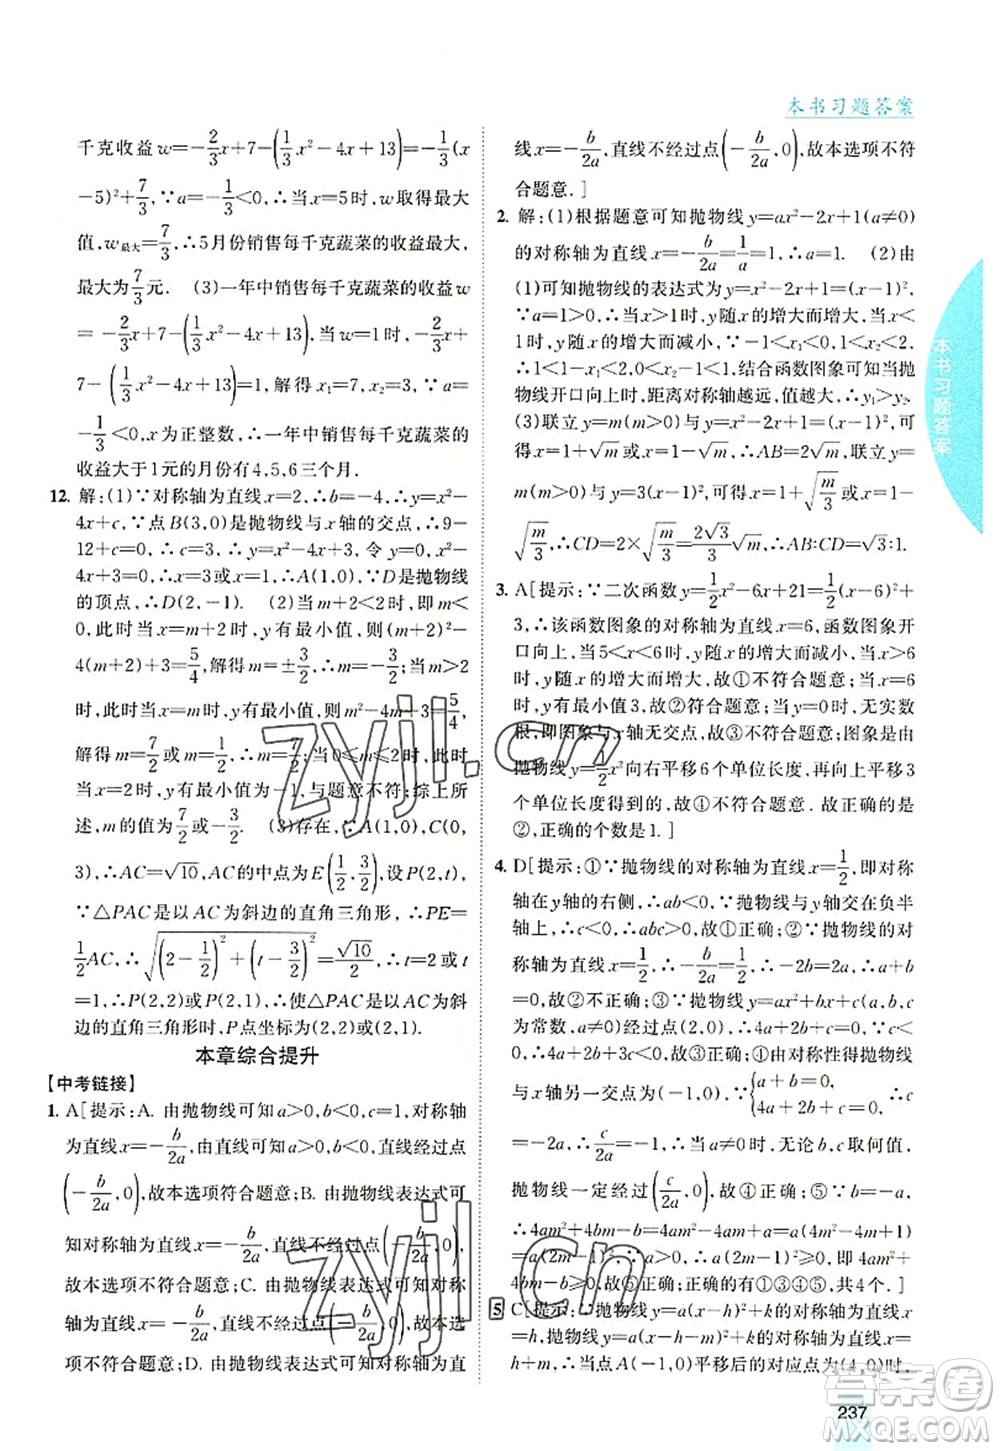 本书习题答案
千克收益w=-2/3x+7-(1/3x²-4x+13)=-1/3(x
-5)²+7/3,∵a=-1/3<0,∴当x=5时,w取得最大
值,w最大=7/3,∴5月份销售每千克蔬菜的收益最大,
最大为7/3元. (3)一年中销售每千克蔬菜的收益w
=-2/3x+7-(1/3x²-4x+13),当w=1时,-2/3x+
7-(1/3x²-4x+13)=1,解得x₁=7,x₂=3,∵a=
-1/3<0,x为正整数,∴一年中销售每千克蔬菜的
收益大于1元的月份有4,5,6三个月.
12. 解:(1)∵对称轴为直线x=2,∴b=-4,∴y=x²-
4x+c,∵点B(3,0)是抛物线与x轴的交点,∴9-
12+c=0,∴c=3,∴y=x²-4x+3,令y=0,x²-
4x+3=0,∴x=3或x=1,∴A(1,0),∵D是抛物线
的顶点,∴D(2,-1) (2)当m+2<2时,即m<
0,此时当x=m+2时,y有最小值,则y最大-y最小=
-4m=5/4,解得m=±3/2,∴m=-3/2;当m>2
时,此时当x=m时,y有最小值,则m²-4m+3=5/4,
解得m=7/2或m=1/2,∴m=7/2;当0≤m≤2时,
此时当x=2时,y有最小值-1,与题意不符;综上所
述,m的值为7/2或-3/2. (3)存在,∵A(1,0),C(0,
3),∴AC=√10,AC的中点为E(1/2,3/2),设P(2,t),
∵△PAC是以AC为斜边的直角三角形,∴PE=
1/2AC,∴√((2-1/2)²+(t-3/2)²)=√10/2,∴t=2或t
=1,∴P(2,2)或P(2,1),∴使△PAC为以AC为斜
边的直角三角形时,P点坐标为(2,2)或(2,1).
本章综合提升
【中考链接】
1. A[提示:A. 由抛物线可知a>0,b<0,c=1,对称轴
为直线x=-b/2a,由直线可知a>0,b<0,直线经过点
(-b/2a,0),故本选项符合题意;B. 由抛物线表达式可
知对称轴为直线x=-b/2a,直线不经过点(-b/2a,0),
故本选项不符合题意;C. 由抛物线表达式可知对称
轴为直线x=-b/2a,直线不经过点(-b/2a,0),故本选
项不符合题意;D. 由抛物线表达式可知对称轴为直
线x=-b/2a,直线不经过点(-b/2a,0),故本选项不符
合题意.]
2. 解:(1)根据题意可知抛物线y=ax²-2x+1(a≠0)
的对称轴为直线x=-b/2a=1/a=1,∴a=1. (2)由
(1)可知抛物线的表达式为y=x²-2x+1=(x-
1)²,∵a=1>0,∴当x>1时,y随x的增大而增大,当x<
1时,y随x的增大而减少,∵-1<x₁<0,1<x₂<2,
∴1<1-x₁<2,0<x₂-1<1,结合函数图象可知当抛
物线开口向上时,距离对称轴越远,值越大,∴y₁>y₂.
(3)联立y=m(m>0)与y=x²-2x+1=(x-1)²,可
得x=1+√m或x=1-√m,∴AB=2√m,联立
y=m(m>0)与y=3(x-1)²,可得x=1+√(m/3)或x=1-
√(m/3),∴CD=2×√(m/3)=2√3/3√m,∴AB∶CD=√3∶1.
3. A[提示:∵二次函数y=1/2x²-6x+21=1/2(x-6)²+
3,∴该函数图象的对称轴为直线x=6,函数图象开
口向上,当5<x<6时,y随x的增大而减小,当x>6
时,y随x的增大而增大,故①不符合题意;当x=6
时,y有最小值3,故②符合题意;当y=0时,无实数
根,即图象与x轴无交点,故③不符合题意;图象是由
抛物线y=1/2x²向右平移6个单位长度,再向上平移3
个单位长度得到的,故④不符合题意. 故正确的是
②,正确的个数是1.]
4. D[提示:①∵抛物线的对称轴为直线x=1/2,即对称
轴在y轴的右侧,∴ab<0,∵抛物线与y轴交在负半
轴上,∴c<0,∴abc>0,故①正确;②∵抛物线的对
称轴为直线x=1/2,∴-b/2a=1/2,∴-2b=2a,∴a+b
=0,故②不正确;③∵抛物线y=ax²+bx+c(a,b,c
为常数,a≠0)经过点(-2,0),∴4a-2b+c=0,∵a+b
=0,∴4a+2a+c=0,故③正确;④由对称性得抛物线
与x轴另一交点为(-c/2a,0),∴{a+b=0,4a+2b+c=0,∴c
=-2a,∴c/2a=-1,∴当a≠0时,无论b,c取何值,
抛物线一定经过(c/2a,0),故④正确;⑤∵b=-a,
∴4am²+4bm-b=4am²-4am+a=a(4m²-4m+1)
=a(2m-1)²,∵a>0,∴a(2m-1)²≥0,即4am²+
4bm-b≥0,故⑤正确;正确的有①③④⑤,共4个.]
5. C[提示:∵抛物线y=a(x-h)²+k的对称轴为直线x=
h,抛物线y=a(x-h-m)²+k的对称轴为直线x=
h+m,∴当点A(1,0)平移后的对应点为(4,0)时,
237
zyjl.cn
zyjl.cn
答案圈
MXQE.COM